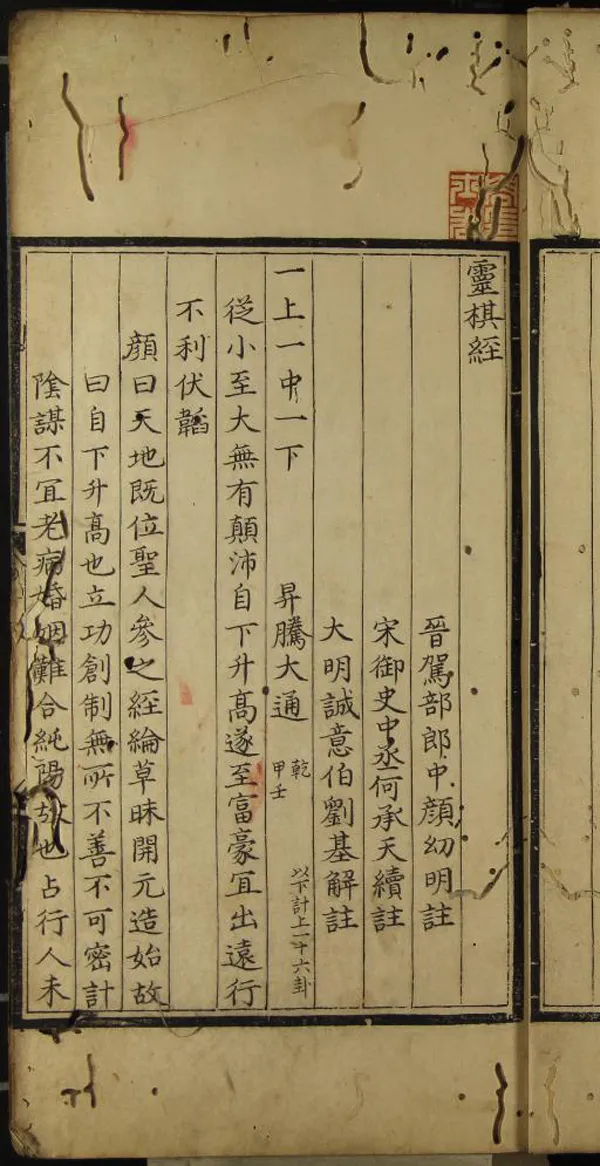 靈棋經
晉駕部郎中顏幼明註
宋御史中丞何承天續註
大明誠意伯劉基解註
一上一中一下 昇騰大通 乾 甲壬 以下計上一十六卦
從小至大無有顛沛自下升高遂至富豪宜出遠行
不利伏韜
顏曰天地既位聖人參之經綸草昧開元造始故
曰自下升高也立功創制無所不善不可密計
陰謀不宜老病婚姻難合純陽故也占行人未